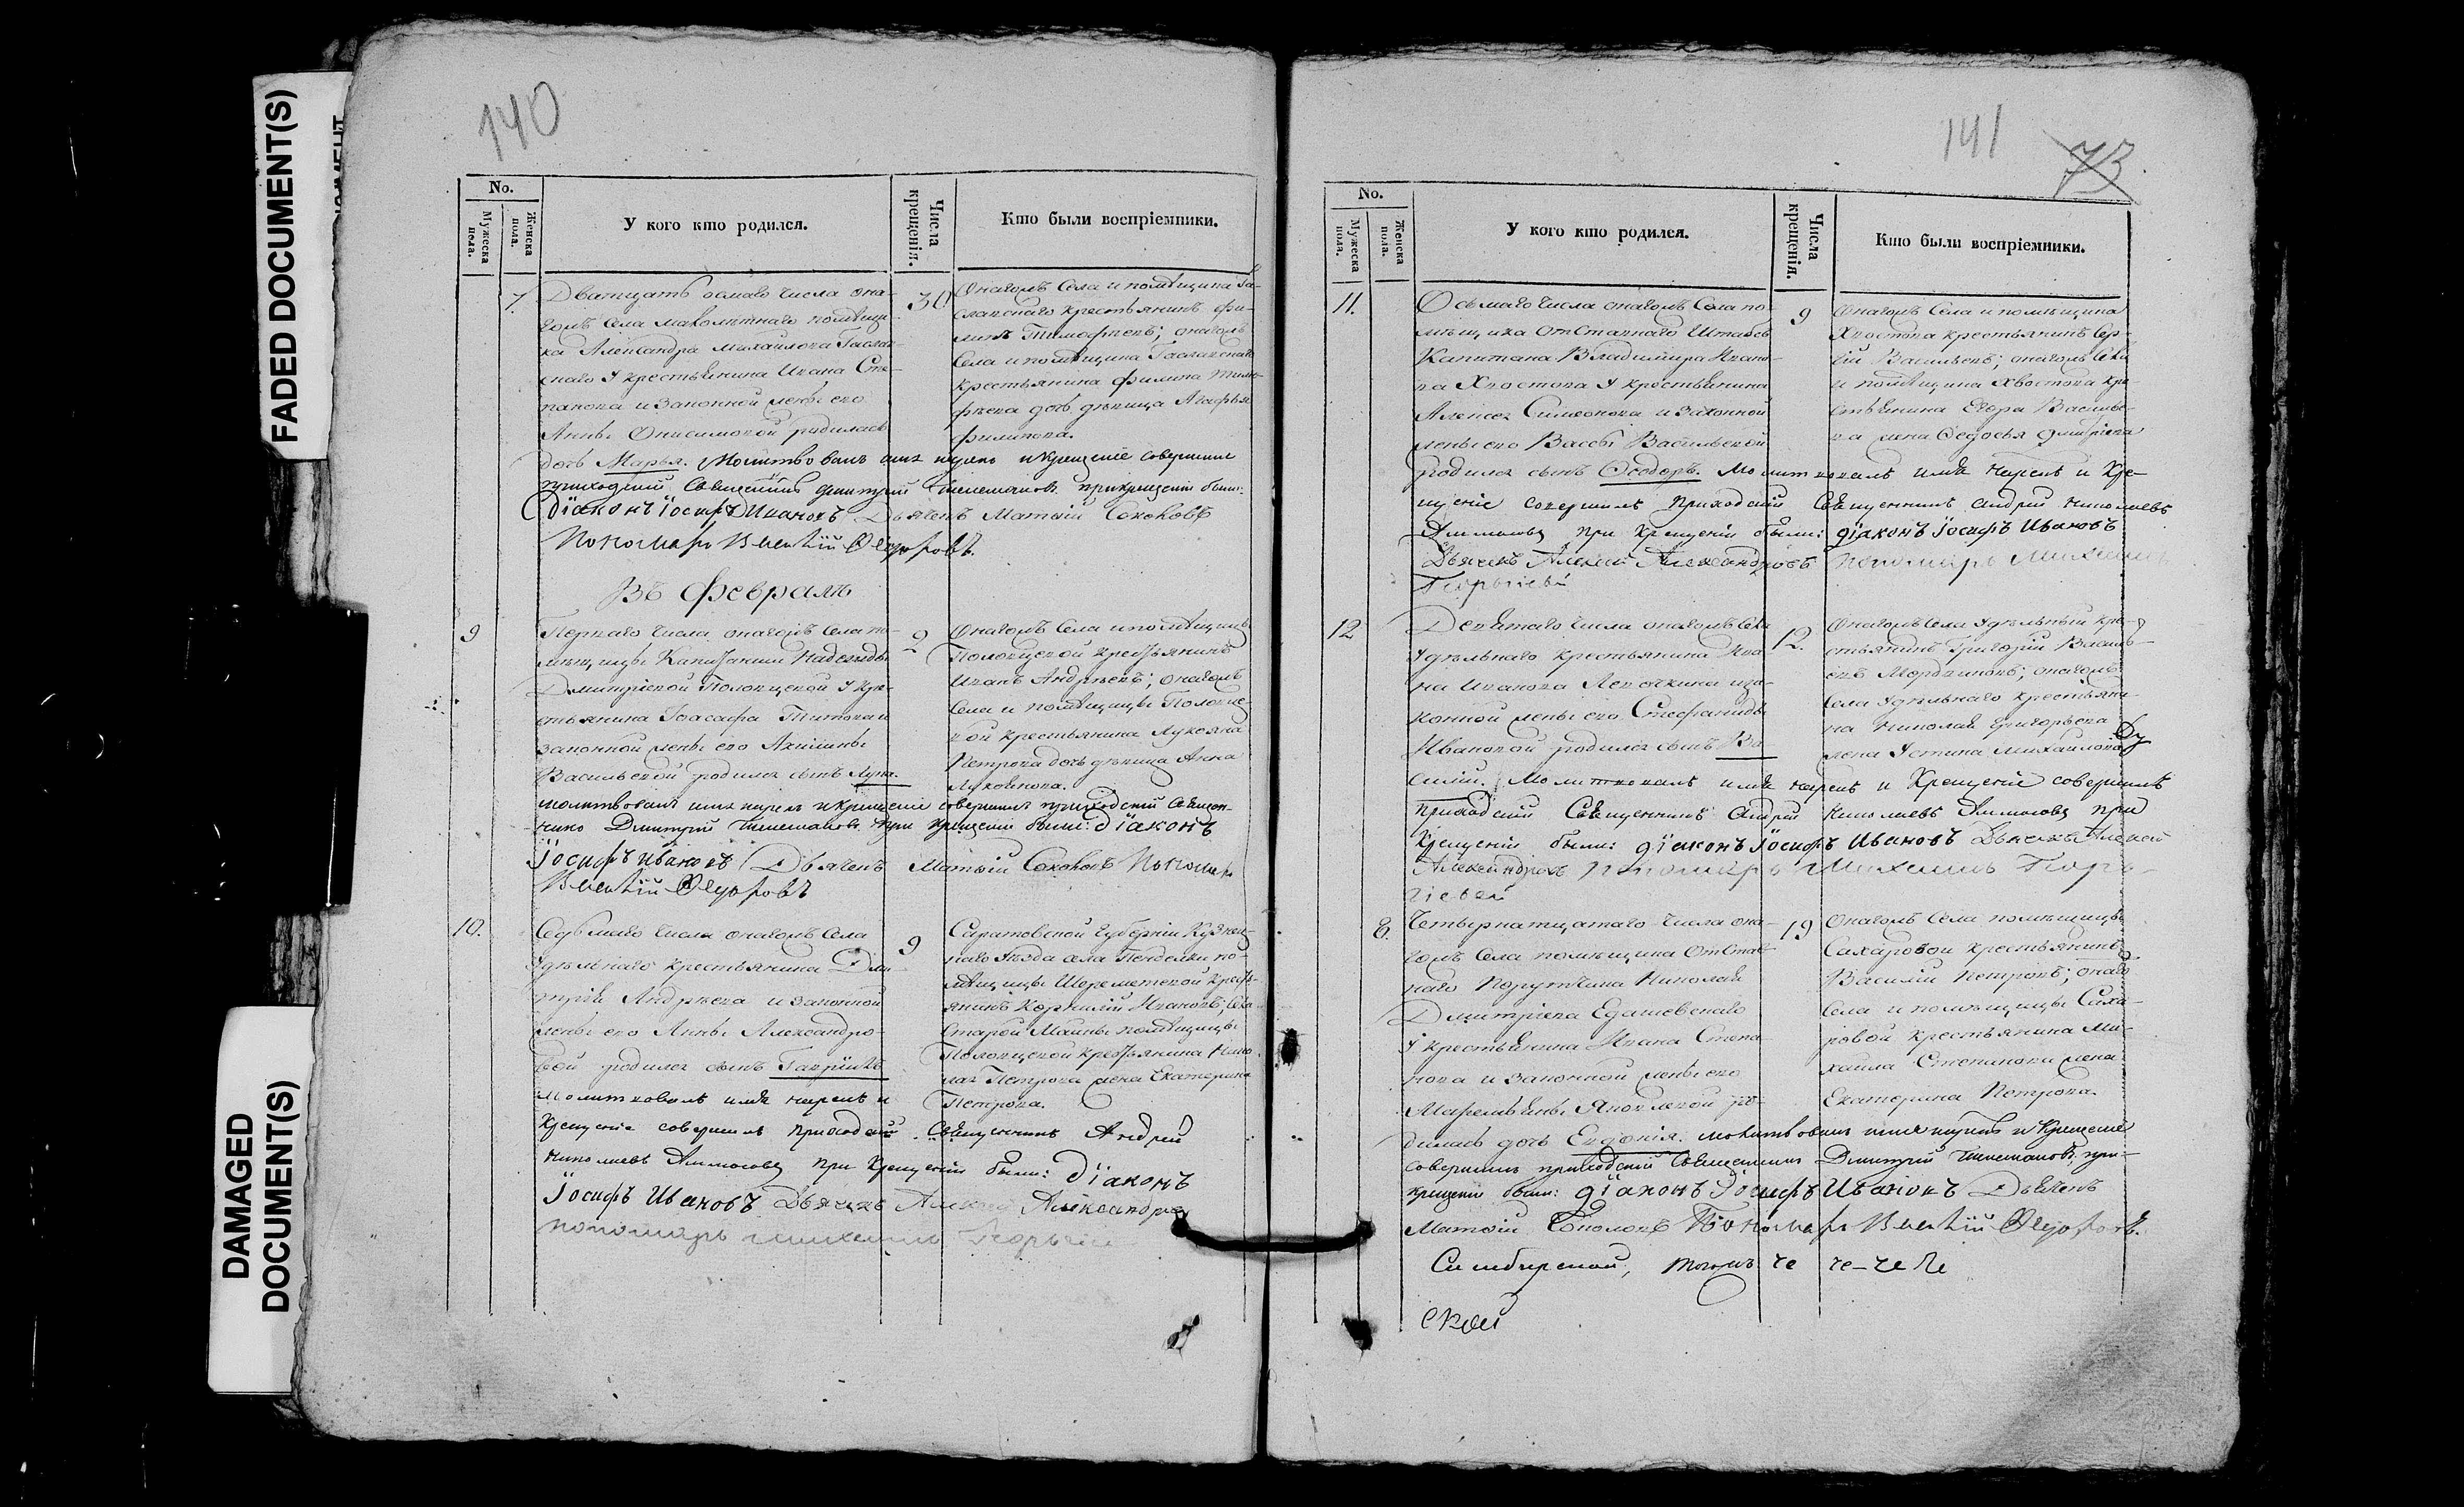 FADED DOCUMENT(S)
DAMAGED
DOCUMENT(S)
140
No.
Мужеска пола.
Женска пола.
У кого кто родился.
Числа крещенія.
Кто были воспріемники.
7.
Дватцать осмаго числа она-
гожъ села малолѣтнаго помѣщи-
ка Александра Михайлова
у крестьянина Ивана Сте-
панова и законной жены его
Анны Онисимовой родилась
дочь Марья. Молитвовалъ имя нарекъ и крещеніе совершилъ
приходскій Священникъ Дмитрій при крещеніи были:
Діаконъ Іосифъ Ивановъ Дьячекъ Матвій Соколовъ
Пономарь Ѳедоровъ
30
Онагожъ села и помѣщика
крестьянинъ Фи-
липъ Тимофѣевъ; онагожъ
села и помѣщика
крестьянина Филипа Тимо-
фѣева дочь дѣвица Агафья
Филипова.
Въ Февралѣ
9
Перваго числа онагожъ села по-
мѣщицы Капитанши Надежды
Дмитріевой Половцовой у кре-
стьянина Іоасафа Титова и
законной жены его Акилины
Васильевой родился сынъ Лука.
молитвовалъ имя нарекъ и крещеніе совершилъ приходскій Священ-
никъ Дмитрій при крещеніи были: діаконъ
Іосифъ Ивановъ Дьячекъ Матвій Соколовъ Пономарь
Ѳедоровъ
2
Онагожъ села и помѣщицы
Половцовой крестьянинъ
Иванъ Андрѣевъ; онагожъ
села и помѣщицы Половцо-
вой крестьянина Лукояна
Петрова дочь дѣвица Анна
Лукоянова.
10.
Седьмаго числа онагожъ села
удѣльнаго крестьянина Дми-
трія Андрѣева и законной
жены его Анны Александро-
вой родился сынъ Гавріилъ
Молитвовалъ имя нарекъ и
крещеніе совершилъ приходскій Священникъ Андрей
Николаевъ при крещеніи были: діаконъ
Іосифъ Ивановъ Дьячекъ Алексей Александровъ
пономарь Михаилъ Георгіевъ
9
Саратовской губерніи Кузнец-
каго уѣзда села Пенделки по-
мѣщицы Шереметевой кресть-
янинъ Корнилій Ивановъ; села
Старой Майны помѣщицы
Половцовой крестьянина Нико-
лая Петрова жена Екатерина
Петрова.
141
73
No.
Мужеска пола.
Женска пола.
У кого кто родился.
Числа крещенія.
Кто были воспріемники.
11.
Осьмаго числа онагожъ села по-
мѣщика отставнаго Штабсъ
Капитана Владимира Ивано-
ва Хвостова у крестьянина
Алексея Симеонова и законной
жены его Вассы Васильевой
родился сынъ Ѳеодоръ. Молитвовалъ имя нарекъ и кре-
щеніе совершилъ приходскій Священникъ Андрей Николаевъ
при крещеніи были: діаконъ Іосифъ Ивановъ
Дьячекъ Алексей Александровъ пономарь Михаилъ
Георгіевъ
9
Онагожъ села и помѣщика
Хвостова крестьянинъ Сер-
гій Васильевъ; онагожъ села
и помѣщика Хвостова кре-
стьянина Егора Василье-
ва жена Ѳедосья Дмитріева
12
Девятаго числа онагожъ села
удѣльнаго крестьянина Ива-
на Иванова и за-
конной жены его Стефаниды
Ивановой родился сынъ Ва-
силій. Молитвовалъ имя нарекъ и крещеніе совершилъ
приходскій Священникъ Андрей Николаевъ при
крещеніи были: діаконъ Іосифъ Ивановъ Дьячекъ Алексей
Александровъ пономарь Михаилъ Геор-
гіевъ
12.
Онагожъ села удѣльный кре-
стьянинъ Григорій Василь-
евъ Мордвиновъ; онагожъ
села удѣльнаго крестьяни-
на Николая Григорьева
жена Устина Михайлова
8.
Четвернатцатаго числа она-
гожъ села помѣщика отстав-
наго Порутчика Николая
Дмитріева
у крестьянина Ивана Степа-
нова и законной жены его
Маремьяны Яковлевой ро-
дилась дочь Евдокія. молитвовалъ имя нарекъ и крещеніе
совершилъ приходскій Священникъ Дмитрій при
крещеніи были: діаконъ Іосифъ Ивановъ Дьячекъ
Матвій Соколовъ Пономарь Ѳедоровъ.
19
Онагожъ села помѣщицы
Сахаровой крестьянинъ
Василій Петровъ; онаго
села и помѣщицы Саха-
ровой крестьянина Ми-
хаила Степанова жена
Екатерина Петрова.
Симбирской,
ской